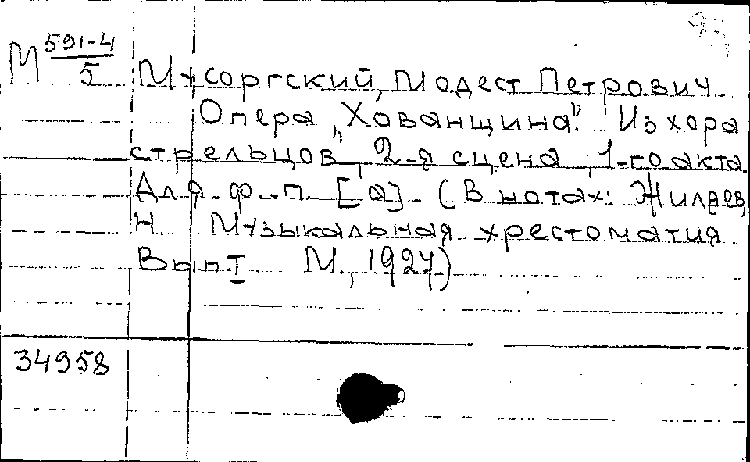 М 591-4/5
Мусоргский, Модест Петрович.
Опера „Хованщина". Из хора
стрельцов, 2-я сцена, 1-го акта.
Для ф.-п. [а]. (В нотах: Жиляев,
Н. Музыкальная хрестоматия
Вып I М., 1927)
34958